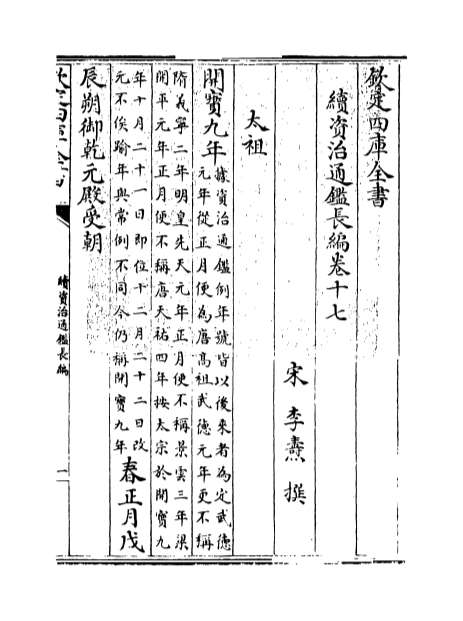 欽定四庫全書
續資治通鑑長編卷十七
宋 李燾 撰
太祖
開寶九年據資治通鑑例年號皆以後來者為定武德
元年從正月便為唐高祖武德元年更不稱
隋義寧二年明皇先天元年正月便不稱景雲三年梁
開平元年正月便不稱唐天祐四年按太宗於開寶九
年十月二十一日即位十二月二十二日改
元不俟踰年與常例不同今仍稱開寶九年春正月戊
辰朔御乾元殿受朝
欽定四庫全書
續資治通鑑長編
一